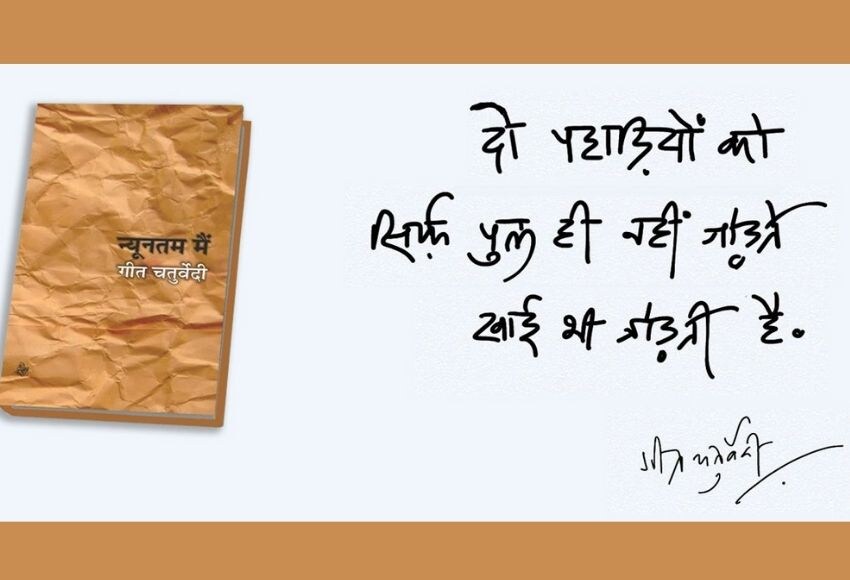 न्यूनतम मैं
गीत चतुर्वेदी
दो पहाड़ियों को
सिर्फ़ पुल ही नहीं जोड़ते
खाई भी जोड़ती है.
गीत चतुर्वेदी